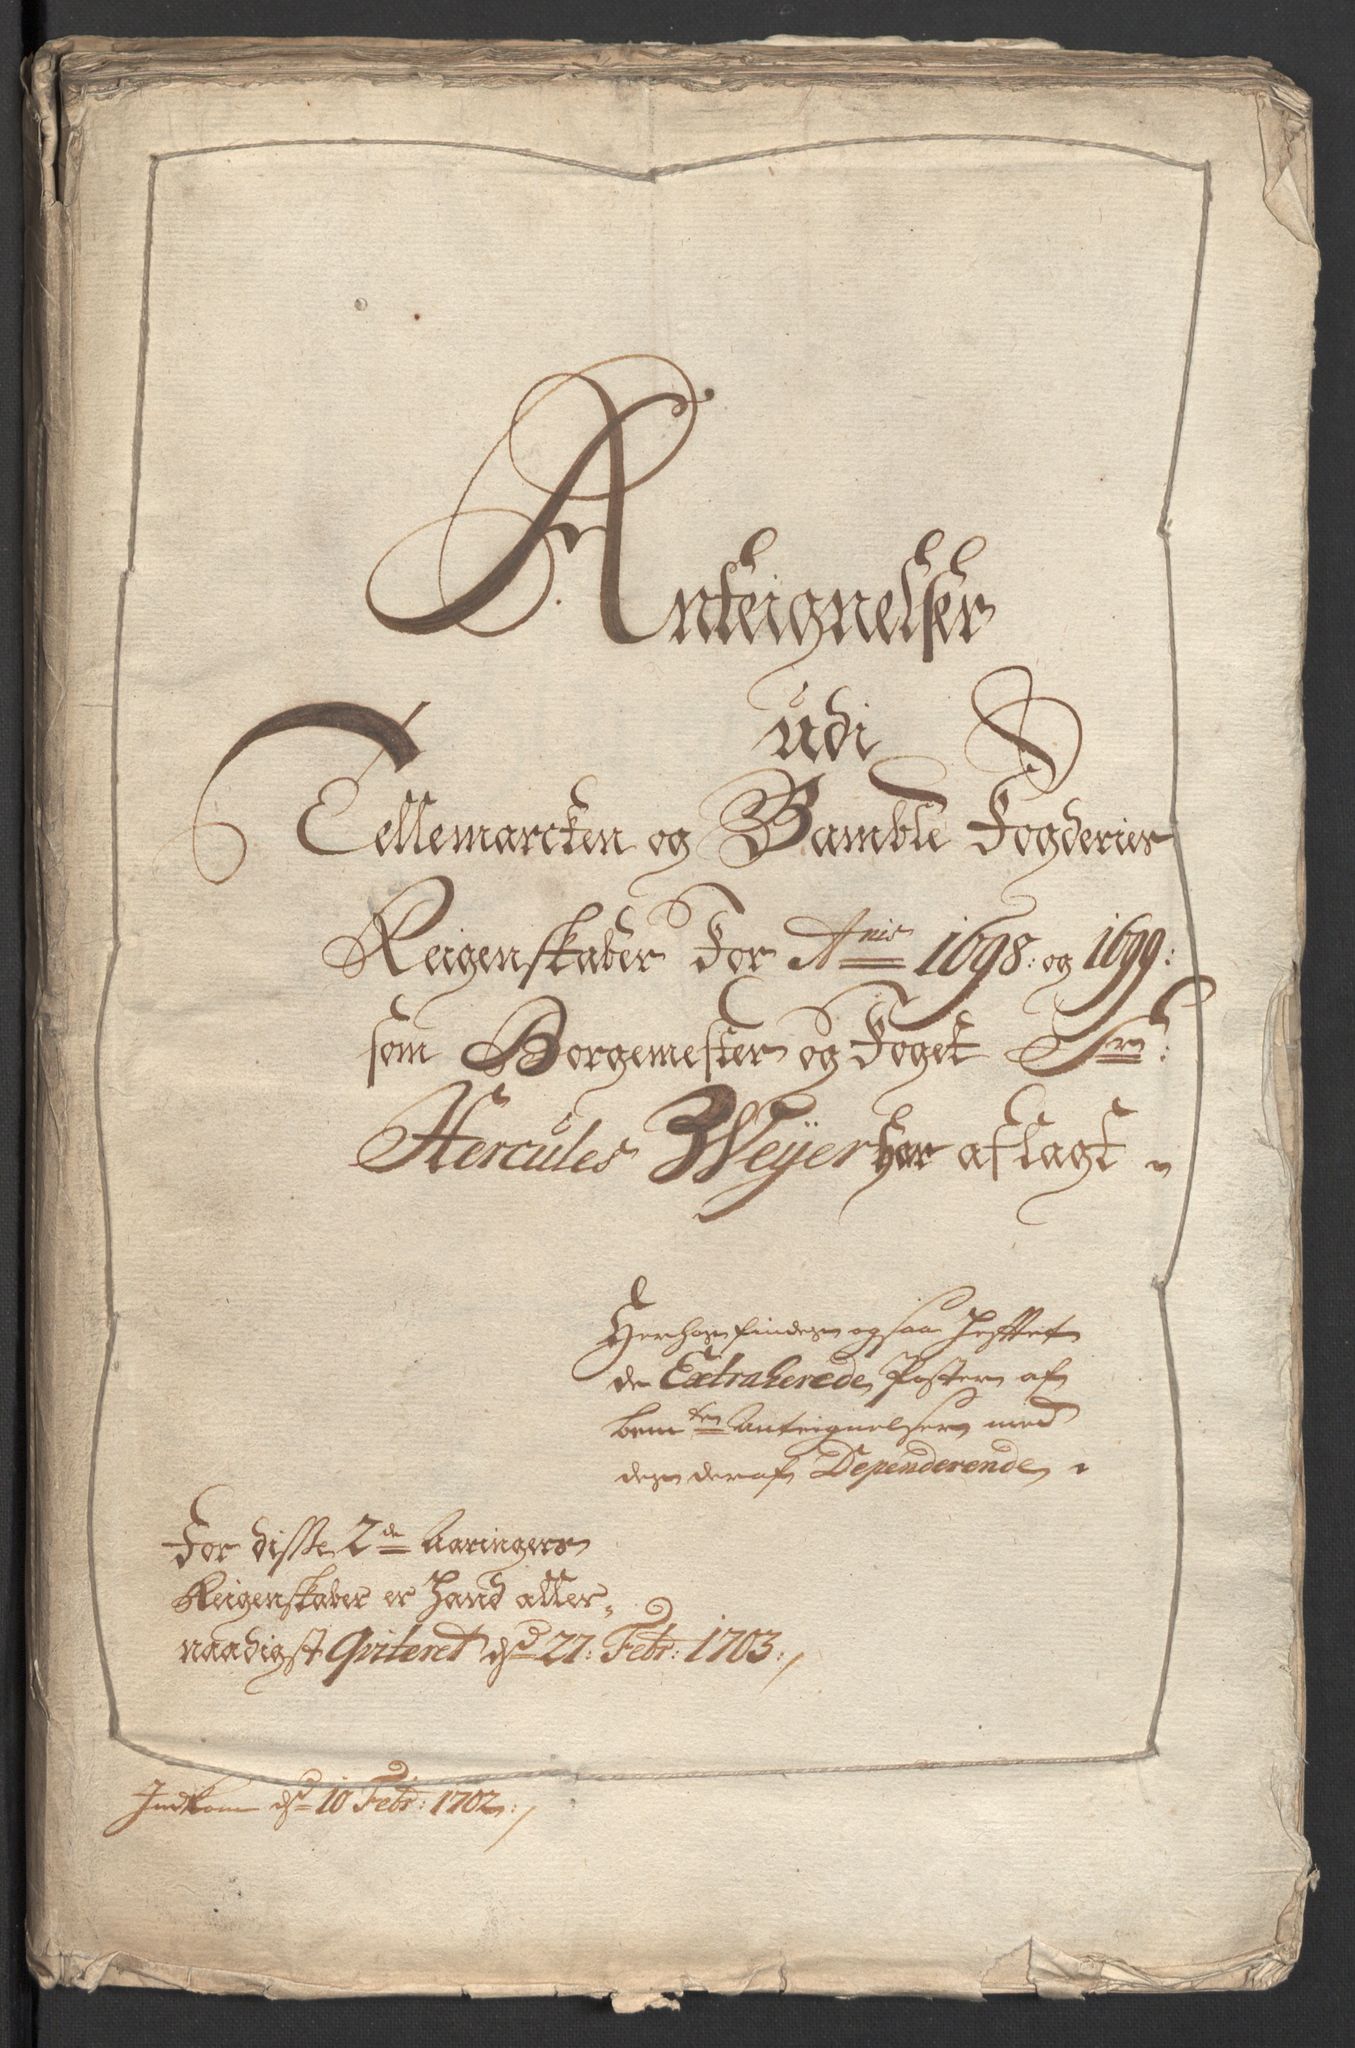 Anteignelser
udi
Tellemarcken og Bamble Fogderies
Reigenskaber For Anis 1698: og 1699:
som Borgemester og Foget Sr:
Hercules Weyer har aflagt
Herhos findes ogsaa Hefftet
de Extraherede Poster af
bemten Anteignelser med
des deraf Dependerende
For disse 2de Aaringers
Reigenskaber er Hand aller-
naadigst Qviteret dend 27: Febr: 1703:/
Indkom dend 10 Febr: 1702:/